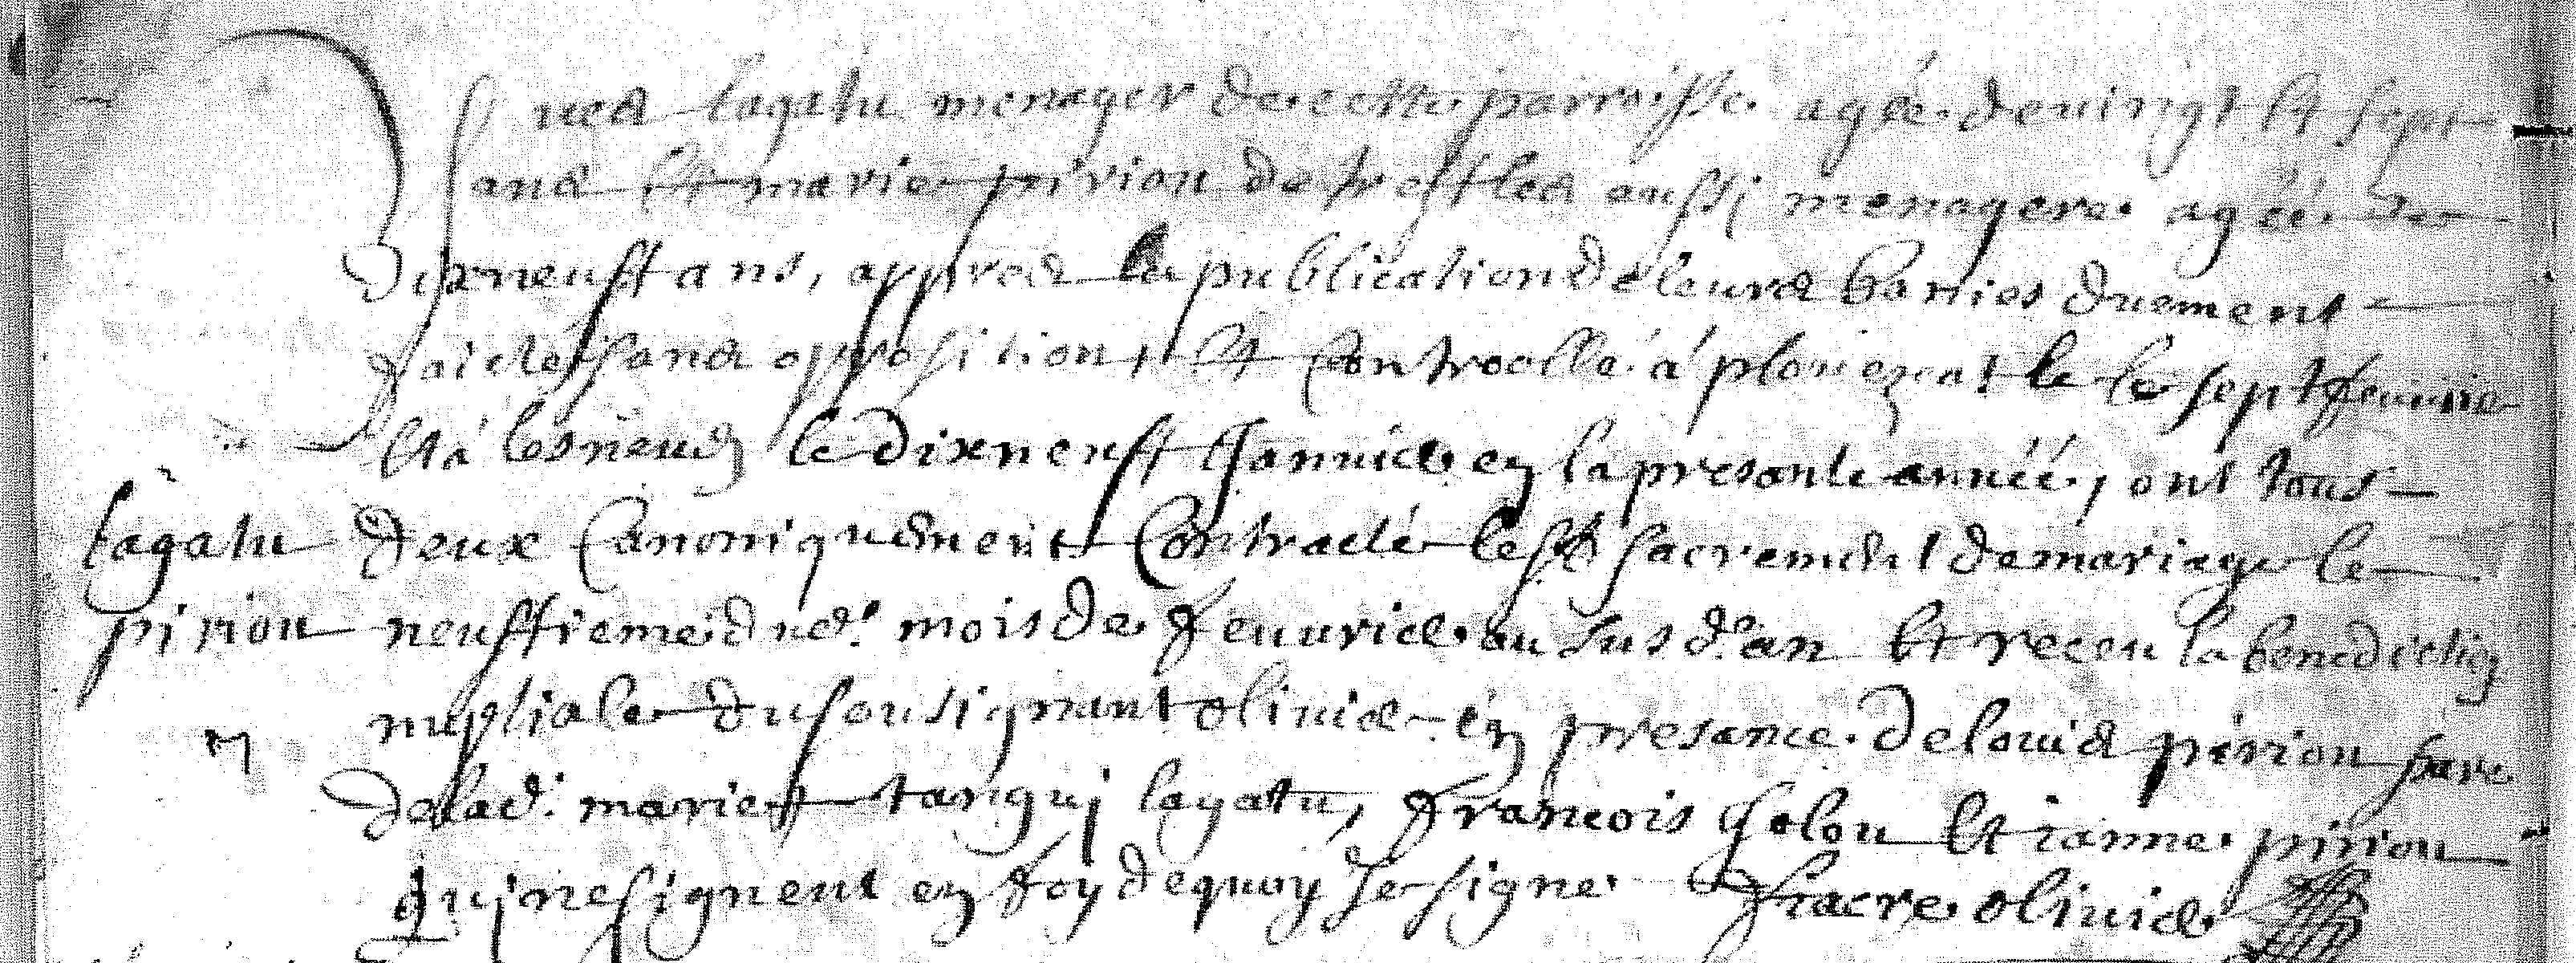 Yues Lagatu menager de cette parroisse agée de vingt et sept
ans et marie pirion de trestles aussi menagere agée de
dixneuff ans, appres la publication de leurs bannies duement
faicte sans opposition, et controollé á plouezat le le sept feuurie
Et á lesneuen le dixneuff Januier en la presante année, ont tous
Lagatu deux Canoniquement Contracté le st sacrement de mariage le
pirion neuffieme dud. mois de feuurier au susd. an et receu la benediction
nuptiale du sousignant oliuier en presance de louis pirion pere
de lad. marie tanguj lagatu, francois Jolou Et ianne pirion
quj ne signent en foy dequoy Je signe fiacre oliuier